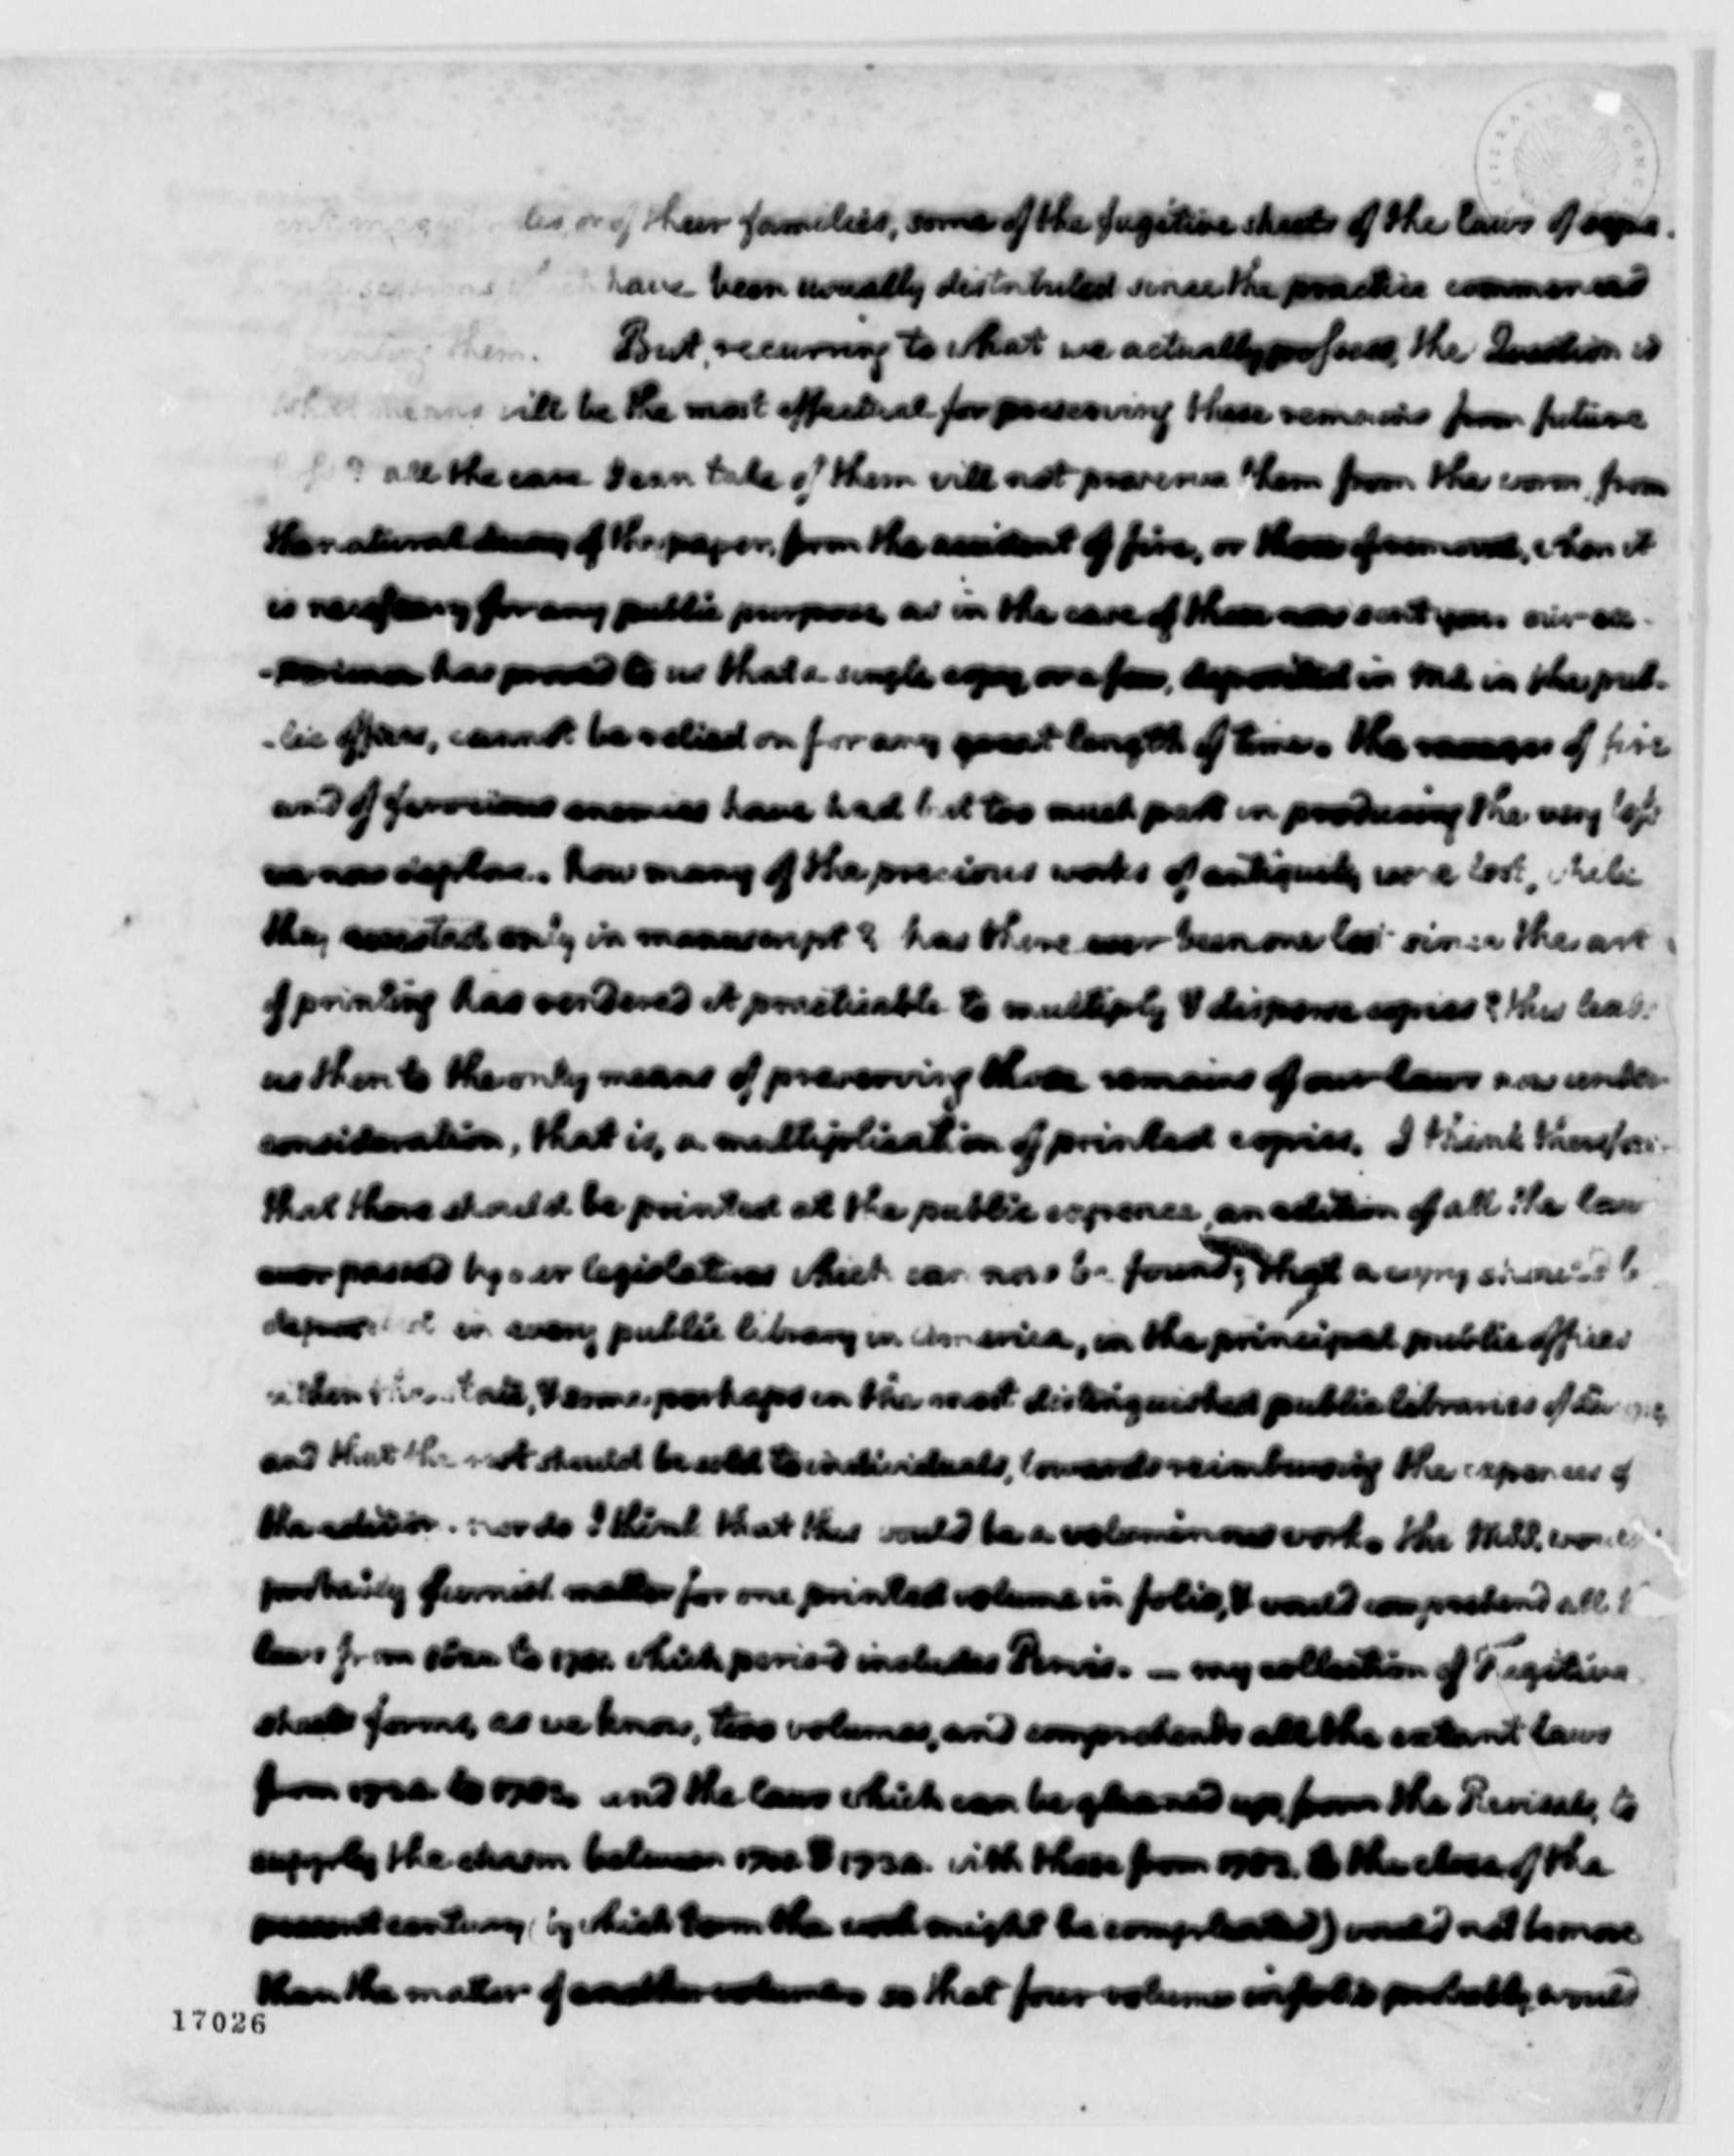 ent magistrates, or of their families, some of the fugitive sheets of the laws of sepa-
sessions which have been usually distributed since the practice commenced
printing them. But, recurring to what we actually possess, the Question is
What means will be the most effectual for preserving these remains from future
? all the care I can take of them will not preserve them from the worm, from
the natural decay of the paper, from the accident of fire, or those of removal, when it
is necessary for any public purpose, as in the case of those now sent you. our ex-
-perience has proved to us that a single copy, or a few, deposited in MS. in the pub-
-lic offices, cannot be relied on for any great length of time. the ravages of fire
and of ferocious enemies have had but too much part in producing the very loss
we now deplore. how many of the precious works of antiquity were lost, while
they existed only in manuscript? has there ever been one lost since the art
of printing has rendered it practicable to multiply & disperse copies? this leads
us then to the only means of preserving those remains of our laws now under
consideration, that is, a multiplication of printed copies. I think therefore
that there should be printed at the public expence, an edition of all the laws
ever passed by our legislatures which can now be found; that a copy should be
deposited in every public library in America, in the principal public offices
within the state, & some perhaps in the most distinguished public libraries of Europe,
and that the rest should be sold to individuals, towards reimbursing the expences of
the edition. nor do I think that this would be a voluminous work. the MSS. would
probably furnish matter for one printed volume in folio, & would comprehend all the
laws from 1624 to 1701. which period includes Purvis. — my collection of Fugitive
sheets forms, as we know, two volumes, and comprehends all the extant laws
from 1734 to 1783. and the laws which can be gleaned up from the Revisals, to
supply the chasm between 1701 & 1734. with those from 1783. to the close of the
present century, (by which term the work might be compleated) would not be more
than the matter of another volume. so that four volumes in folio probably, would
17026